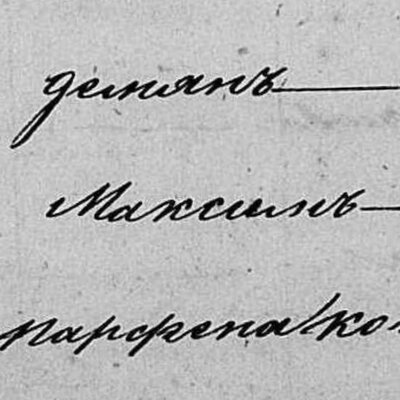 Демянъ
Максимъ
Парфена